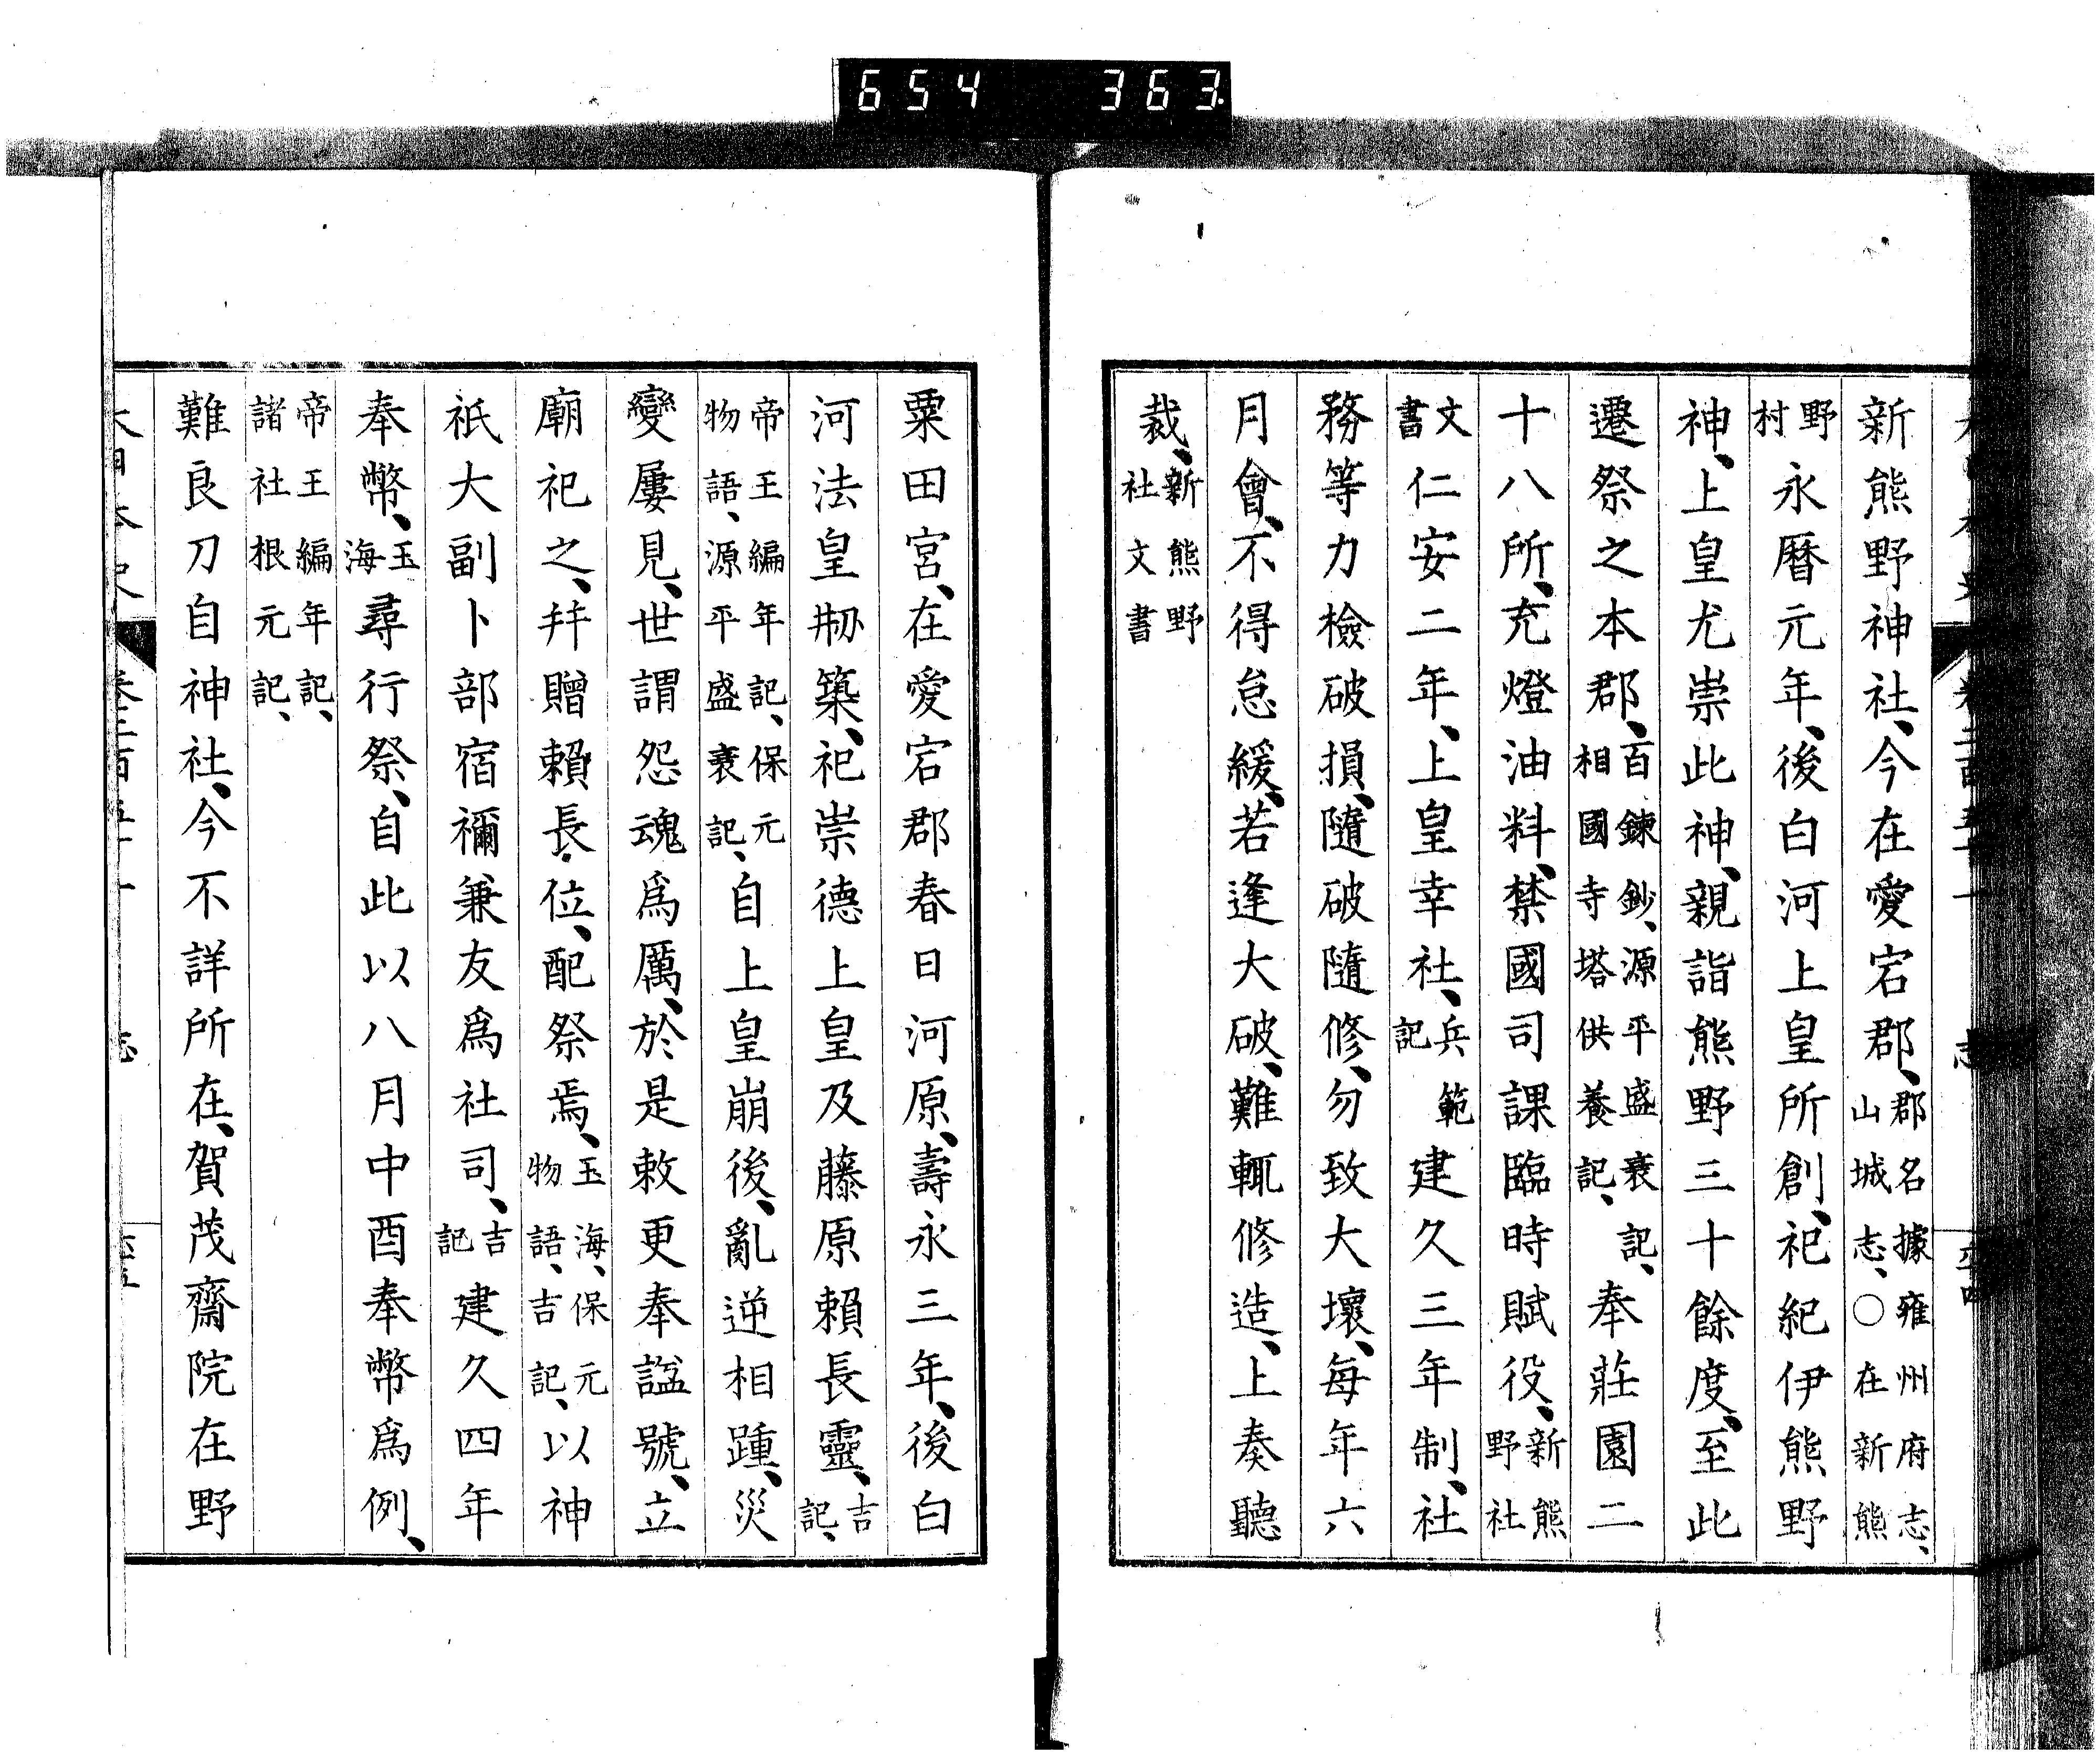 654 363.
新熊野神社、今在愛宕郡、郡名據雍州府志、山城志、〇在新熊
野村永曆元年、後白河上皇所創、祀紀伊熊野
神、上皇尤崇此神、親詣熊野三十餘度、至此
遷祭之本郡、百鍊鈔、源平盛衰記、相國寺塔供養記、奉莊園二
十八所、充燈油料、禁國司課臨時賦役、新熊野社
文書仁安二年、上皇幸社、兵範記建久三年制、社
務等力檢破損、隨破隨修、勿致大壞、每年六
月會、不得怠緩、若逢大破、難輙修造、上奏聽
裁、新熊野社文書
粟田宮、在愛宕郡春日河原、壽永三年、後白
河法皇剏築、祀崇德上皇及藤原賴長靈、吉記、
帝王編年記、保元物語、源平盛衰記、自上皇崩後、亂逆相踵、災
變屢見、世謂怨魂爲厲、於是敕更奉謚號、立
廟祀之、幷贈賴長位、配祭焉、玉海、保元物語、吉記、以神
祇大副卜部宿禰兼友爲社司、吉記建久四年
奉幣、玉海尋行祭、自此以八月中酉奉幣爲例、
帝王編年記、諸社根元記、
難良刀自神社、今不詳所在、賀茂齋院在野